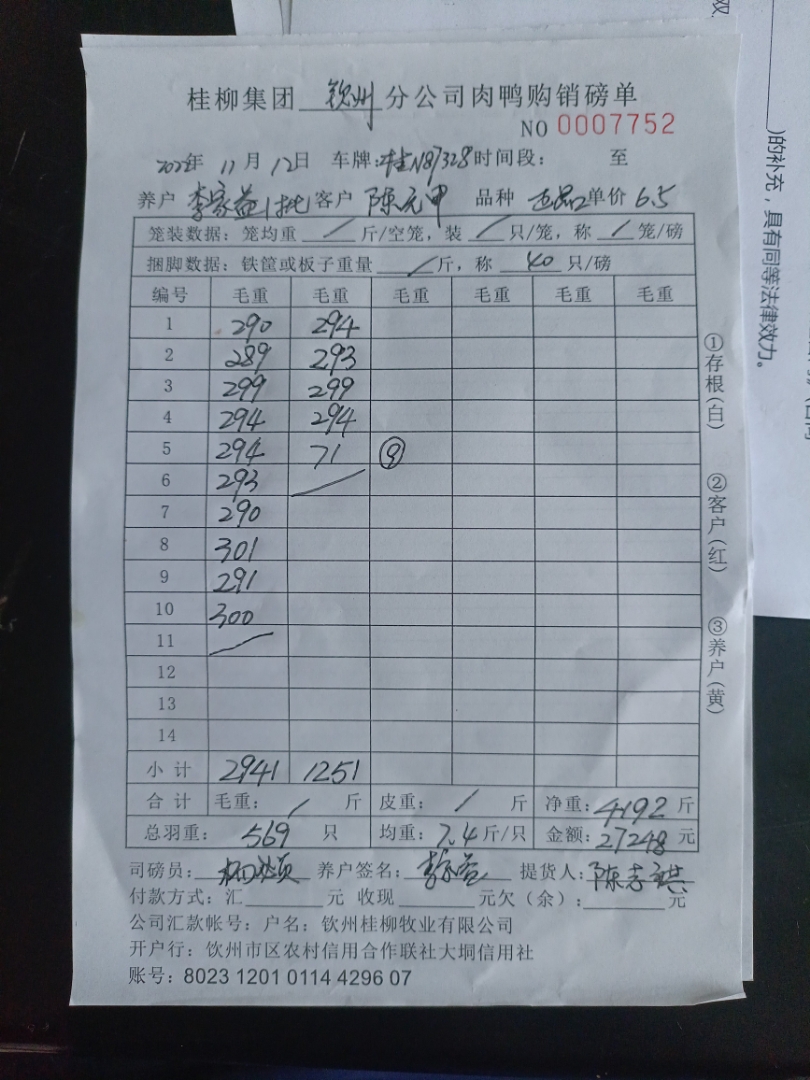 桂柳集团 钦州 分公司肉鸭购销磅单
NO 0007752
2022年 11月 12日 车牌:桂N87328 时间段: 至
养户 李家益1批 客户 陈元甲 品种 正品 单价 6.5
笼装数据:笼均重 / 斤/空笼,装 / 只/笼,称 / 笼/磅
捆脚数据:铁筐或板子重量 / 斤,称 40 只/磅
编号 毛重 毛重 毛重 毛重 毛重 毛重
1 290 294
2 289 293
3 299 299
4 294 294
5 294 71 ⑨
6 293 /
7 290
8 301
9 291
10 300
11 /
12
13
14
小计 2941 1251
合计 毛重: / 斤 皮重: / 斤 净重: 4192 斤
总羽重: 569 只 均重: 7.4 斤/只 金额: 27248 元
司磅员: 养户签名: 李家益 提货人: 陈李
付款方式:汇 元 收现 元欠(余): 元
公司汇款帐号:户名:钦州桂柳牧业有限公司
开户行:钦州市区农村信用合作联社大垌信用社
账号:8023 1201 0114 4296 07
①存根(白)
②客户(红)
③养户(黄)
)的补充,具有同等法律效力。